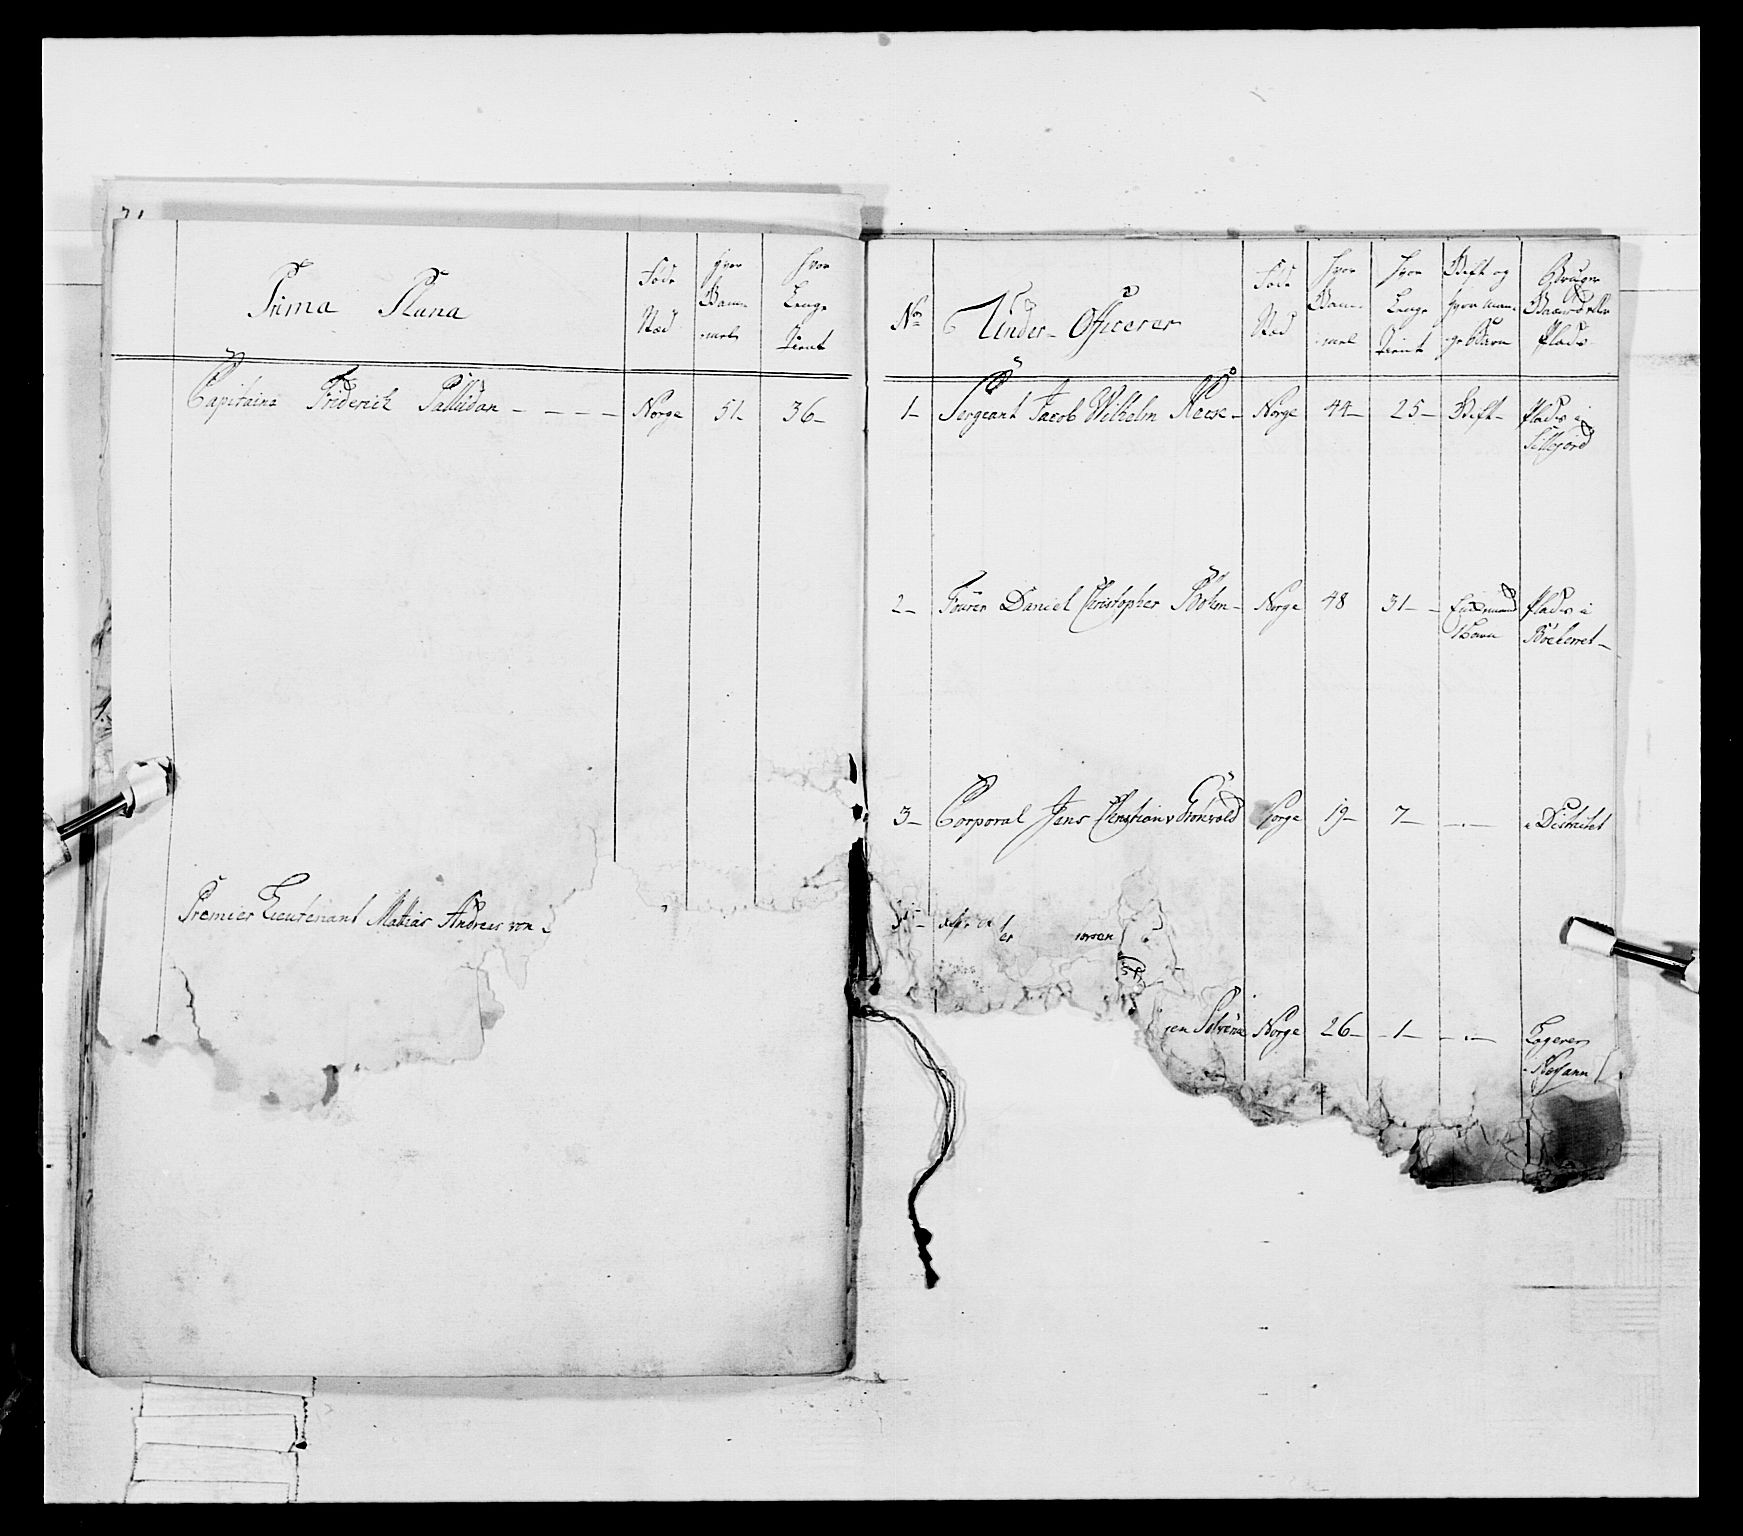 Prima Plana
Føde Stæd
Hvor Gammel
Hvor Lenge Tient
Capitaine Friderich Palludan - - - - Norge 51- 36-
Premier Lieutenant Mathias Andreas von
No
Under-Officerer
Føde Stæd
Hvor Gammel
Hvor Lenge Tient
Gift og hvor mange Børn
Bruger Gaard eller Plads
1- Sergeant Jacob Wilhelm Reese- Norge 44- 25- Gift- Plads i
Sillejord
2- Fourer Daniel Christopher Bøhm- Norge 48 31- Plads i
3- Corporal Jens Christian Grønvold Norge 19- 7- -.- i Districtet
er
Norge 26- -1- -.- Logerer